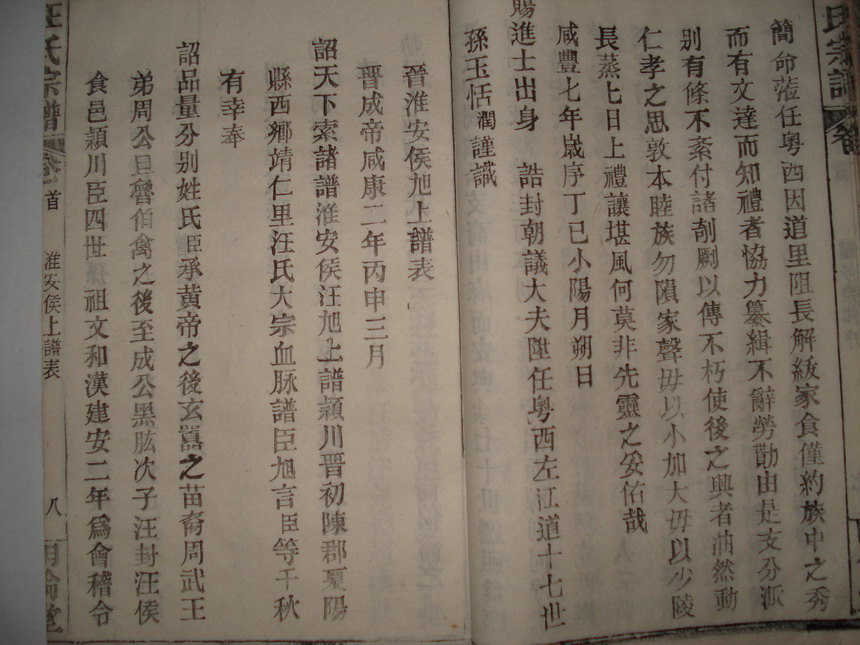 氏宗譜 卷
簡命蒞任粵西因道里阻長解紱家食僅約族中之秀
而有文達而知禮者恊力纂緝不辭勞勩由是支分泒
别有條不紊付諸剞劂以傳不朽使後之興者油然動
仁孝之思敦本睦族勿隕家聲毋以小加大毋以少陵
長蒸七日上禮讓堪風何莫非先靈之妥佑哉
咸豐七年嵗序丁巳小陽月朔日
賜進士出身 誥封朝議大夫陞任粵西左江道十七世
孫玉恬潤謹識
晉淮安侯旭上譜表
晉成帝咸康二年丙申三月
詔天下索諸譜淮安侯汪旭上譜潁川晋初陳郡夏陽
縣西鄉靖仁里汪氏大宗血脉譜臣旭言臣等千秋
有幸奉
詔品量分别姓氏臣承黄帝之後玄囂之苗裔周武王
弟周公旦魯伯禽之後至成公黑肱次子汪封汪侯
食邑潁川臣四世孫祖文和漢建安二年爲會稽令
汪氏宗譜 卷首 淮安侯上譜表 八